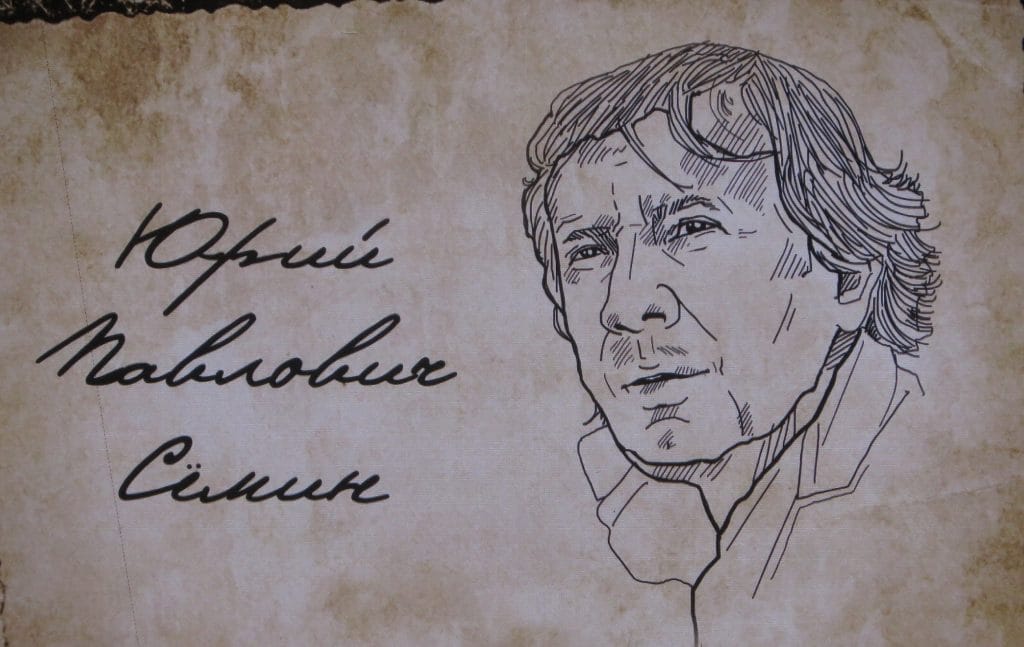 Юрий
Павлович
Сёмин